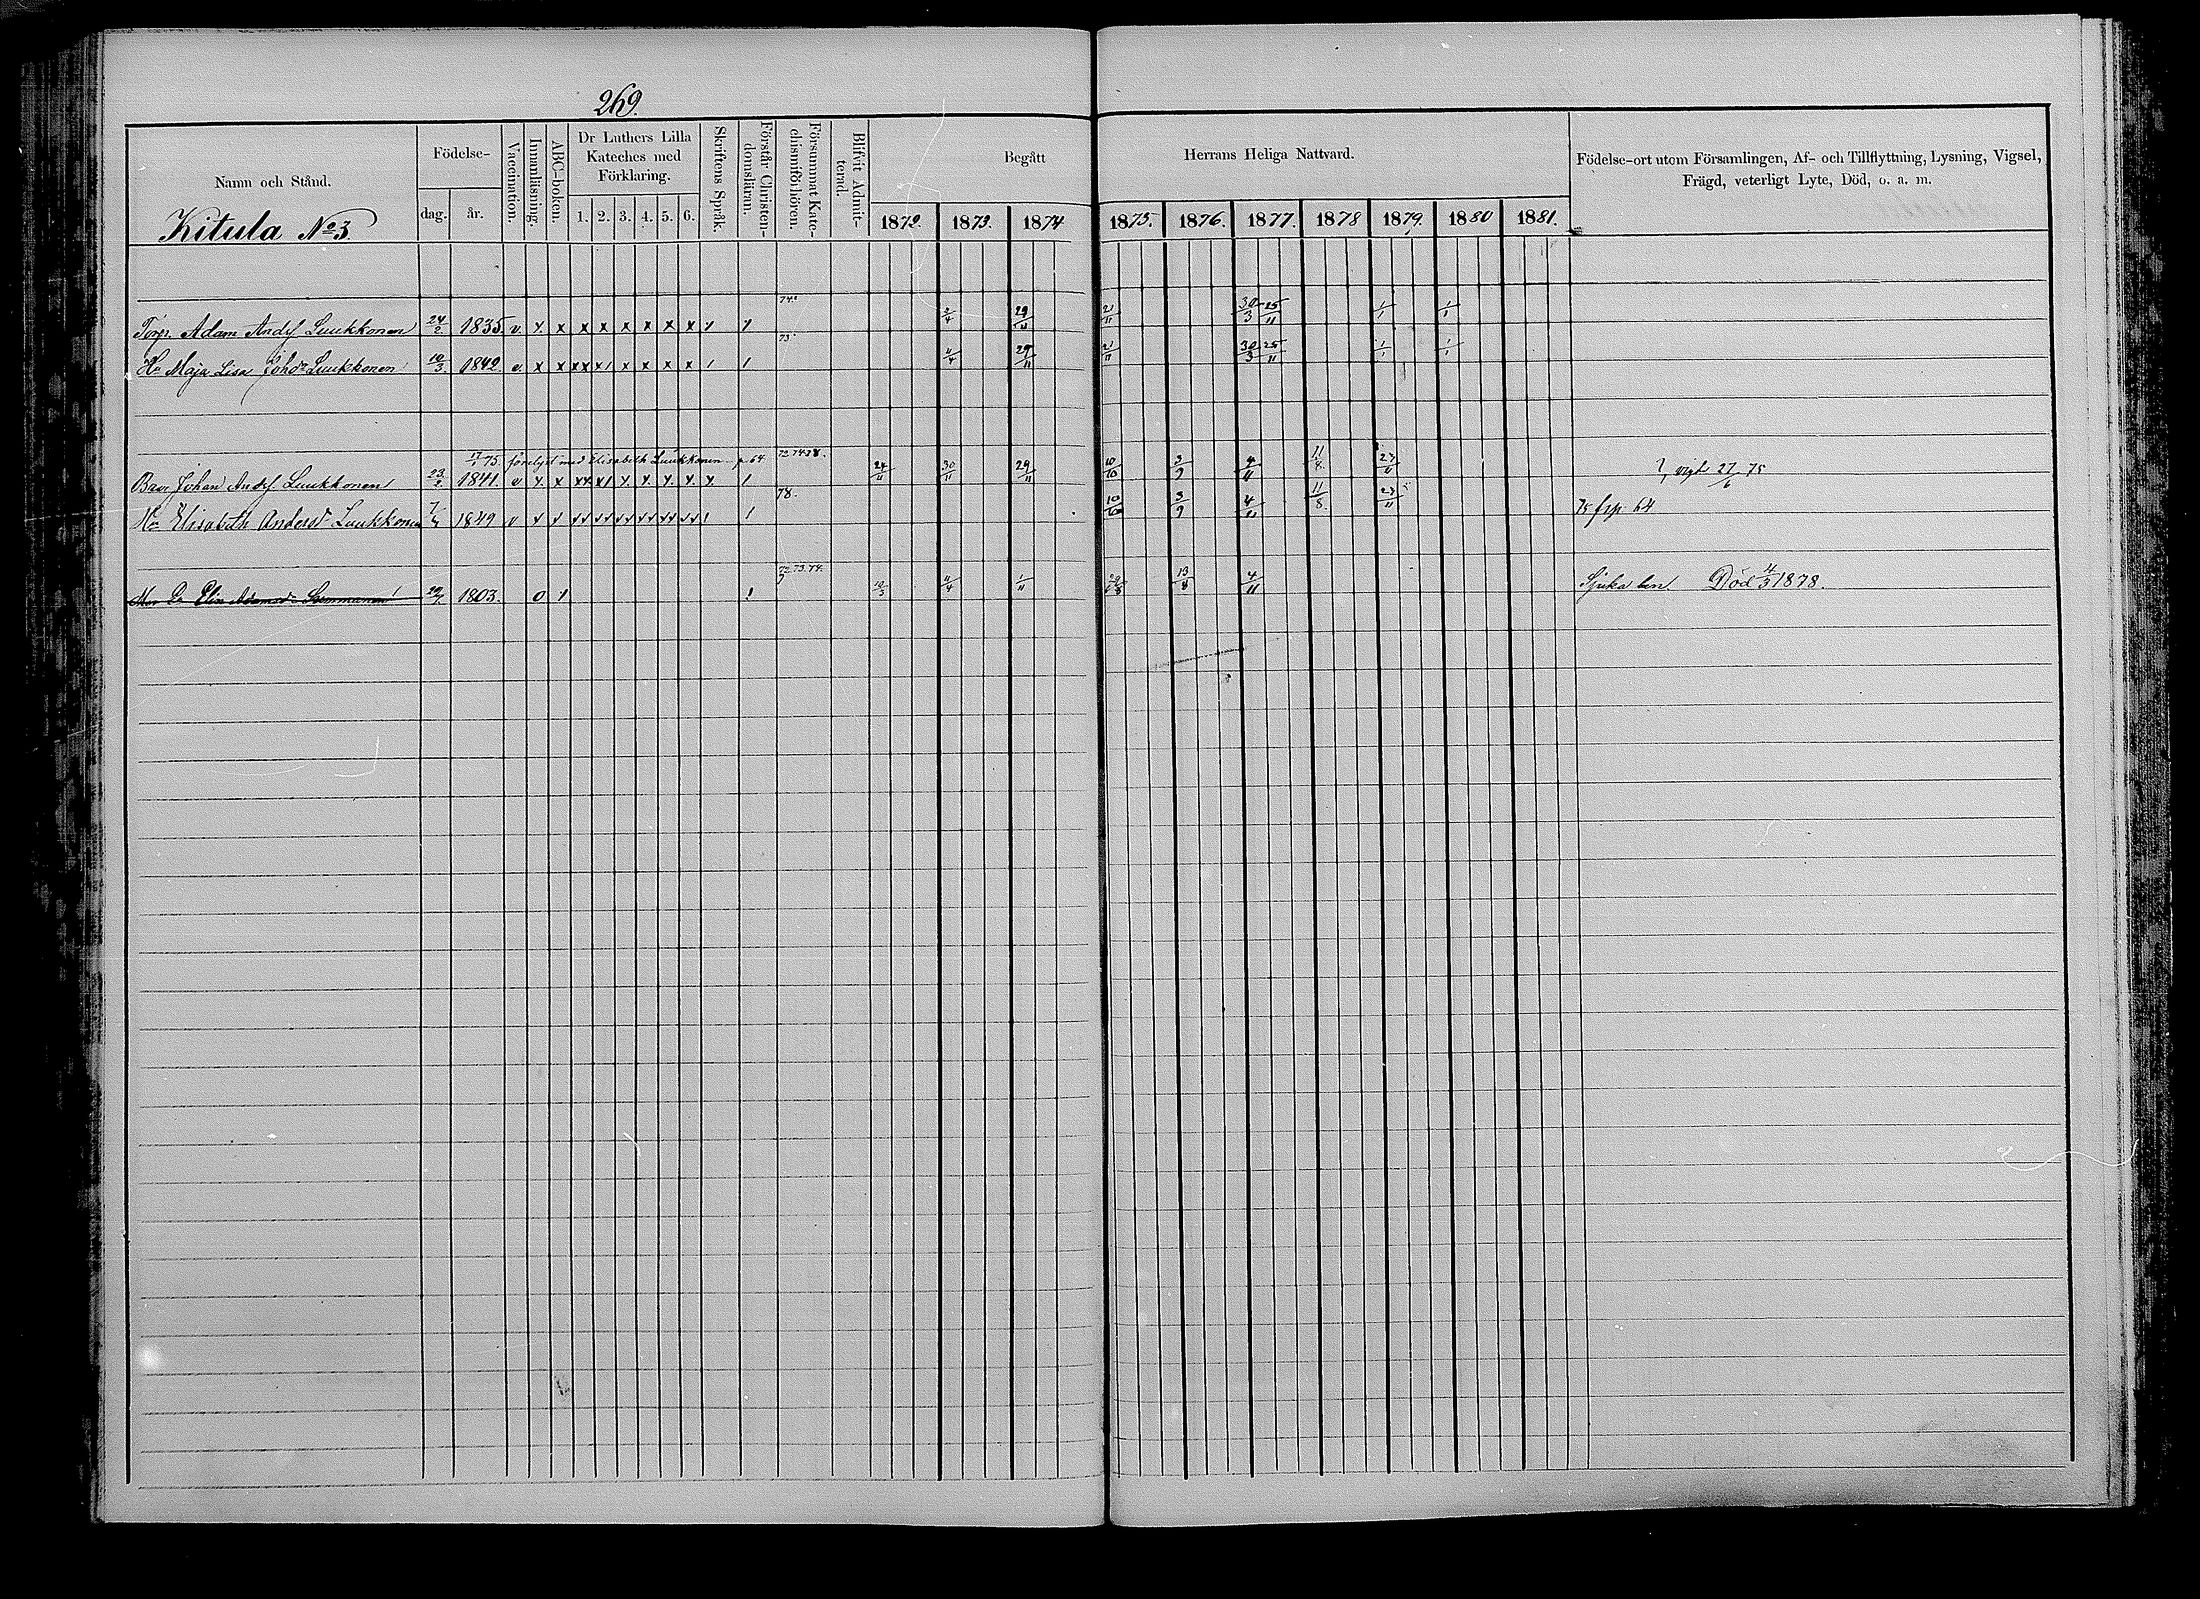 269.
Namn och Stånd.
Födelse-
dag. år.
Vaccination.
Innanläsning.
ABC-boken.
Dr Luthers Lilla
Kateches med
Förklaring.
1. 2. 3. 4. 5. 6.
Skriftens Språk.
Förstår Christen-
domsläran.
Försummat Kate-
chismiförhören.
Blifvit Admit-
terad.
Begått Herrans Heliga Nattvard.
1872. 1873. 1874 1875. 1876. 1877. 1878 1879. 1880 1881.
Födelse-ort utom Församlingen, Af- och Tillflyttning, Lysning, Vigsel,
Frägd, veterligt Lyte, Död, o. a. m.
Kitula No 3
74.
Torp. Adam Andsf Luukkonen 24/2 1835. v. x x x x x x x x 2/4 29/11 21/11 30/3 25/11 1/1 1/1
73
Hu Maja Lisa Johdr Luukkonen 10/3 1842 v. x x xx x1 x x x x 1 1 4/4 29/11 21/11 30/3 25/11 1/1 1/1
17/1 75. förelyst med Elisabeth Luukkonen p. 64 72 74
Johan Andsf Luukkonen 23/2 1841. v x x xx x1 x x x x x 1 24/11 30/11 29/11 10/10 3/9 4/11 11/8 23/11 vigd 27/6 75
78.
Hu Elisabeth Andersdr Luukkonen 7/4 1849 v 1 1 10/10 3/9 4/11 11/8 23/11 75 frp. 64
72. 73. 74.
Elin Adamsdr 1803. 0 1 1 10/3 4/4 1/11 13/8 4/11 Sjuka ben. Död 4/3 1878.